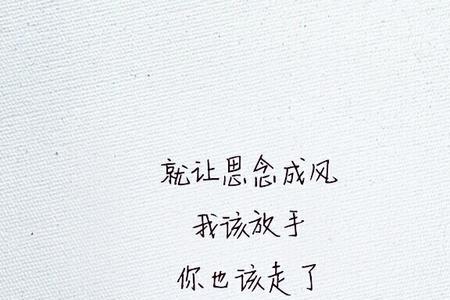 就让思念成风
我该放手
你也该走了